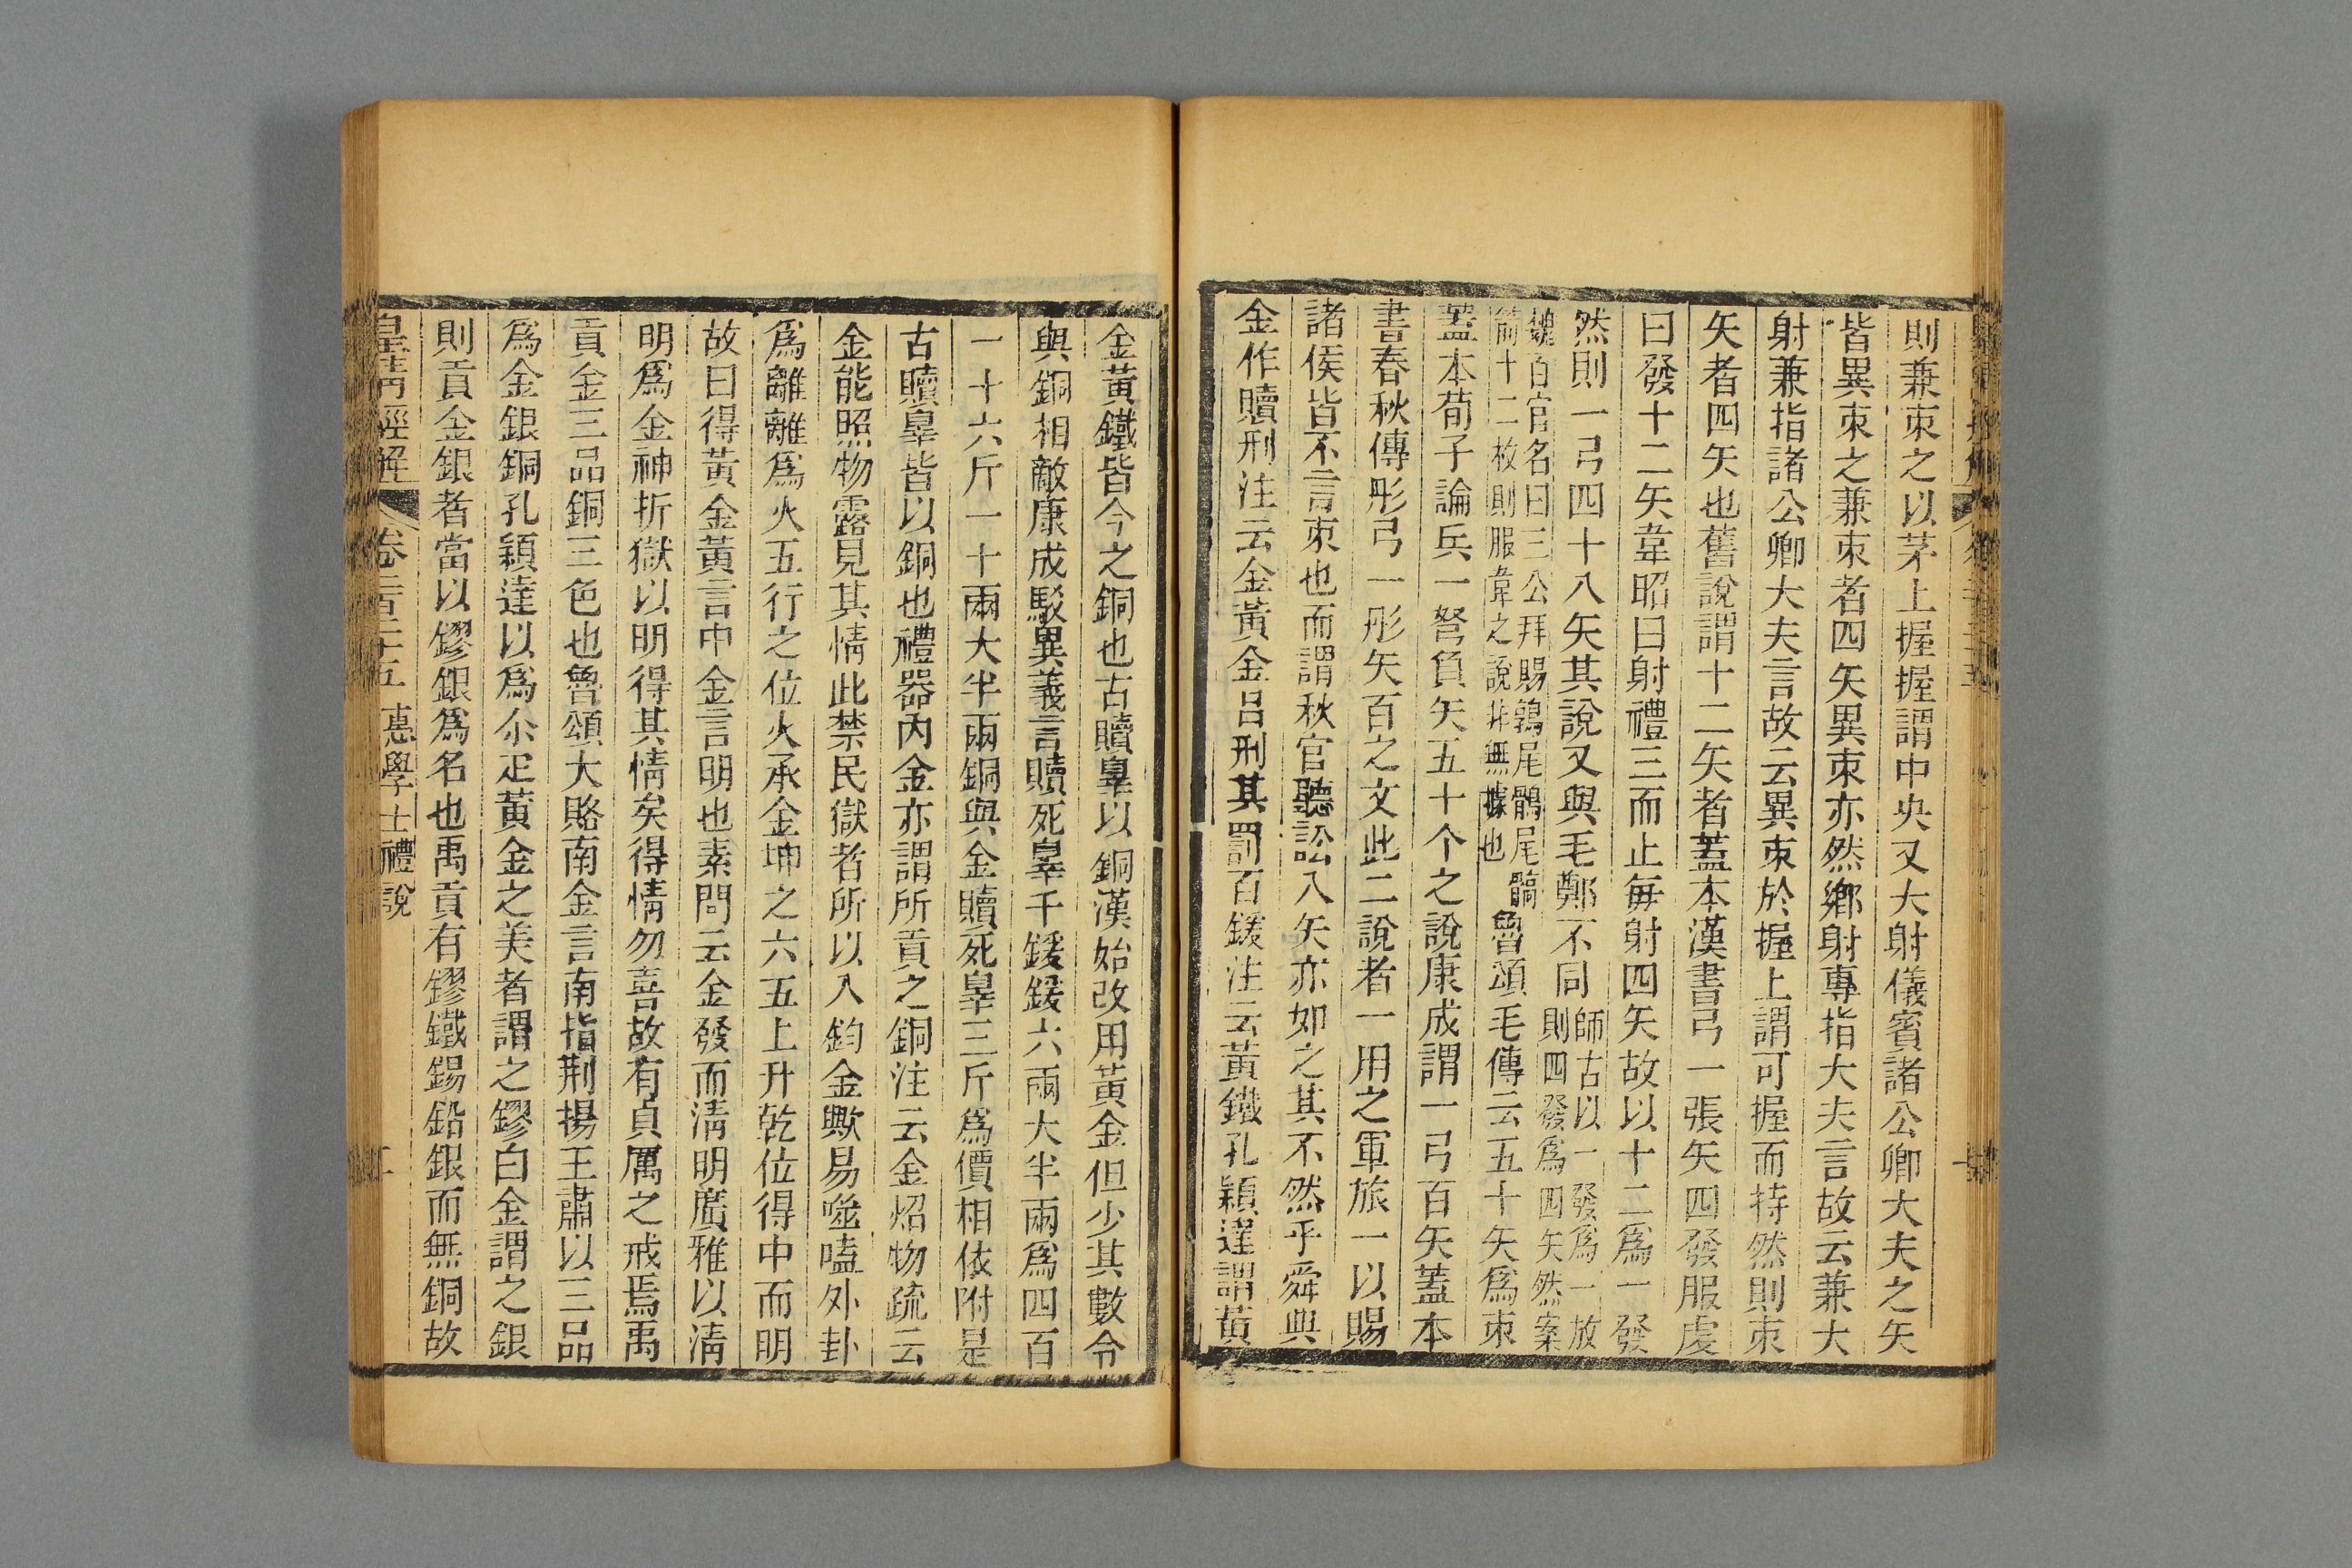 則兼束之以茅上握握謂中央又大射儀賓諸公卿大夫之矢
皆異束之兼束者四矢異束亦然鄉射專指大夫言故云兼大
射兼指諸公卿大夫言故云異束於握上謂可握而持然則束
矢者四矢也舊說謂十二矢者蓋本漢書弓一張矢四發服虔
曰發十二矢韋昭曰射禮三而止每射四矢故以十二爲一發
然則一弓四十八矢其說又與毛鄭不同師古以一發爲一放
則四發爲四矢然案
百官名曰三公拜賜鶉尾鶻尾髇
箭十二枚則服韋之說非無據也魯頌毛傳云五十矢爲束
蓋本荀子論兵一弩負矢五十个之說康成謂一弓百矢蓋本
書春秋傳彤弓一彤矢百之文此二說者一用之軍旅一以賜
諸侯皆不言束也而謂秋官聽訟入矢亦如之其不然乎舜典
金作贖刑注云金黃金呂刑其罰百鍰注云黃鐵孔穎達謂黃
金黃鐵皆今之銅也古贖辠以銅漢始改用黃金但少其數令
與銅相敵康成駁異義言贖死辠千鍰鍰六兩大半兩爲四百
一十六斤一十兩大半兩銅與金贖死辠三斤爲價相依附是
古贖辠皆以銅也禮器內金亦謂所貢之銅注云金炤物疏云
金能照物露見其情此禁民獄者所以入鈞金歟易噬嗑外卦
爲離離爲火五行之位火承金坤之六五上升乾位得中而明
故曰得黃金黃言中金言明也素問云金發而清明廣雅以清
明爲金神折獄以明得其情矣得情勿喜故有貞厲之戒焉禹
貢金三品銅三色也魯頌大賂南金言南指荆揚王肅以三品
爲金銀銅孔穎達以爲尒疋黃金之美者謂之鏐白金謂之銀
則貢金銀者當以鏐銀爲名也禹貢有鏐鐵錫鉛銀而無銅故
皇清經解 卷二百二十五 惠學士禮說